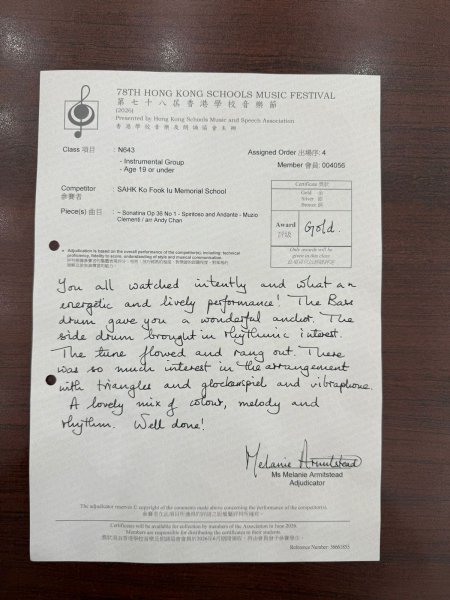 78TH HONG KONG SCHOOLS MUSIC FESTIVAL
第七十八屆香港學校音樂節
(2026)
Presented by Hong Kong Schools Music and Speech Association
香港學校音樂及朗誦協會主辦
Class 項目 : N643
- Instrumental Group
- Age 19 or under
Assigned Order 出場序: 4
Member 會員: 004056
Competitor 參賽者 SAHK Ko Fook Iu Memorial School
Piece(s) 曲目 : ~ Sonatina Op 36 No 1 - Spiritoso and Andante - Muzio
Clementi / arr Andy Chan
Certificate 獎狀
Gold 金
Silver 銀
Bronze 銅
Award 評級 Gold.
Only awards will be
given in this class
* Adjudication is based on the overall performance of the competitor(s), including: technical
proficiency, fidelity to score, understanding of style and musical communication.
You all watched intently and what an
energetic and lively performance! The Bass
drum gave you a wonderful anchor. The
side drum brought in rhythmic interest.
The tune flowed and rang out. There
was so much interest in the arrangement
with triangles and glockenspiel and vibraphone.
A lovely mix of colour, melody and
rhythm. Well done!
Melanie Armitstead
Ms Melanie Armitstead
Adjudicator
The adjudicator reserves © copyright of the comments made above concerning the performance of the competitor(s).
Certificates will be available for collection by members of the Association in June 2026.
Members are responsible for distributing the certificates to their students.
Reference Number: 36661855